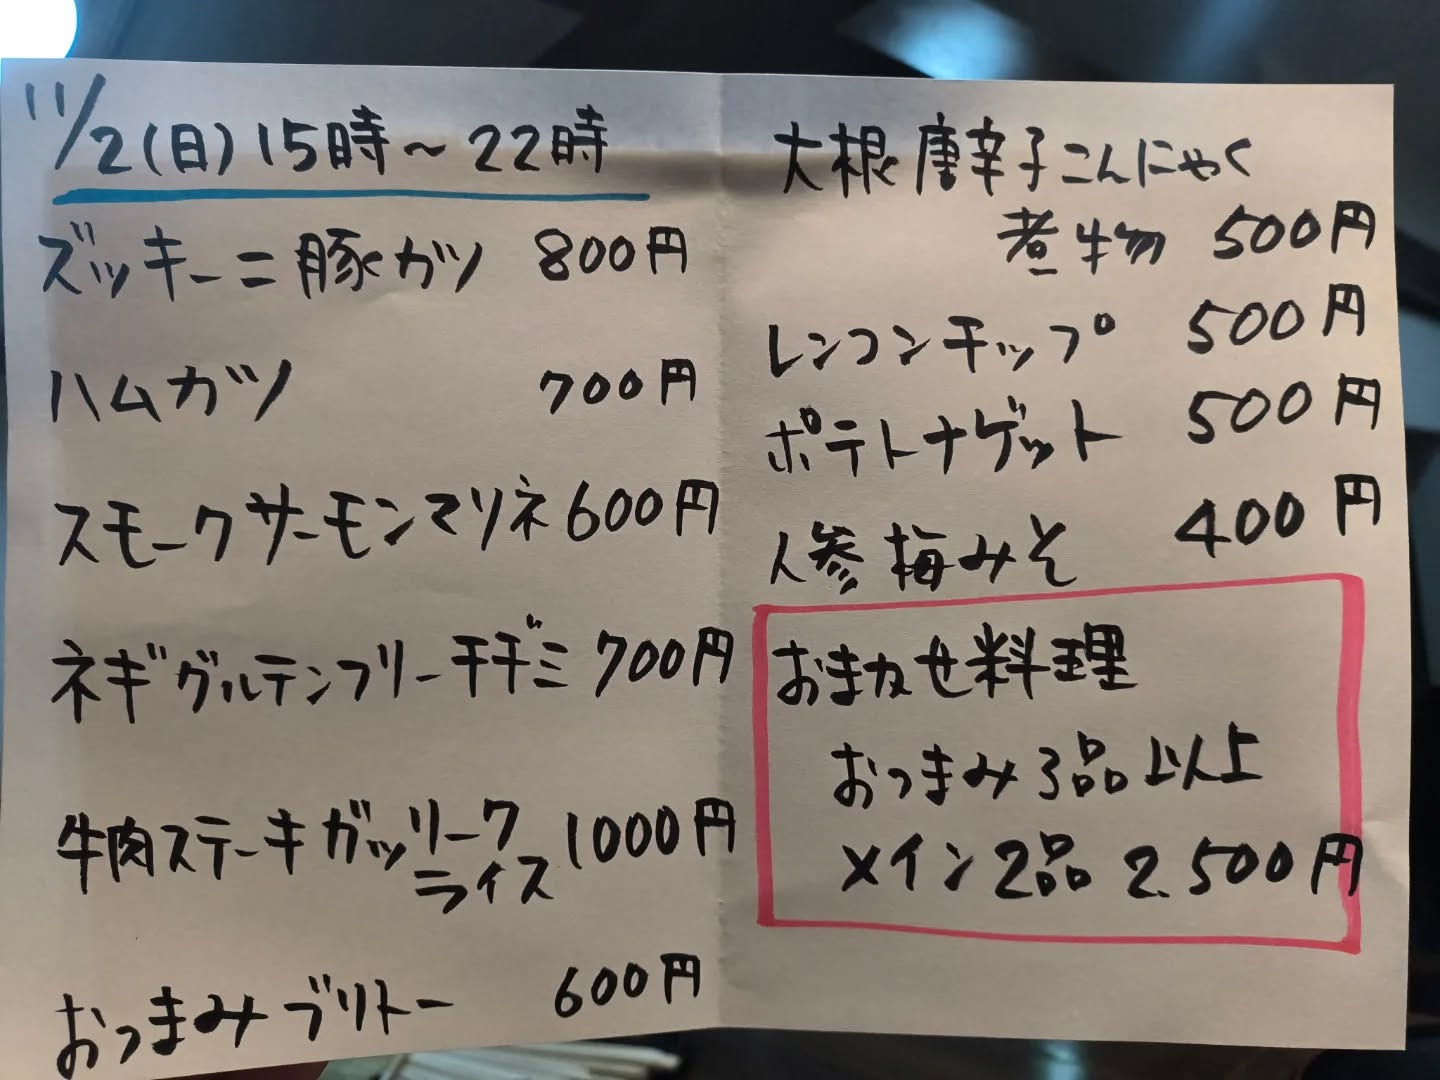 11/2(日)15時～22時
ズッキーニ豚ガツ 800円
ハムカツ 700円
スモークサーモンマリネ 600円
ネギグルテンフリーチヂミ 700円
牛肉ステーキガッリーク 1000円
ライス
おつまみブリトー 600円
大根唐辛子こんにゃく
煮物 500円
レンコンチップ 500円
ポテトナゲット 500円
人参梅みそ 400円
おまかせ料理
おつまみ3品以上
メイン2品 2.500円